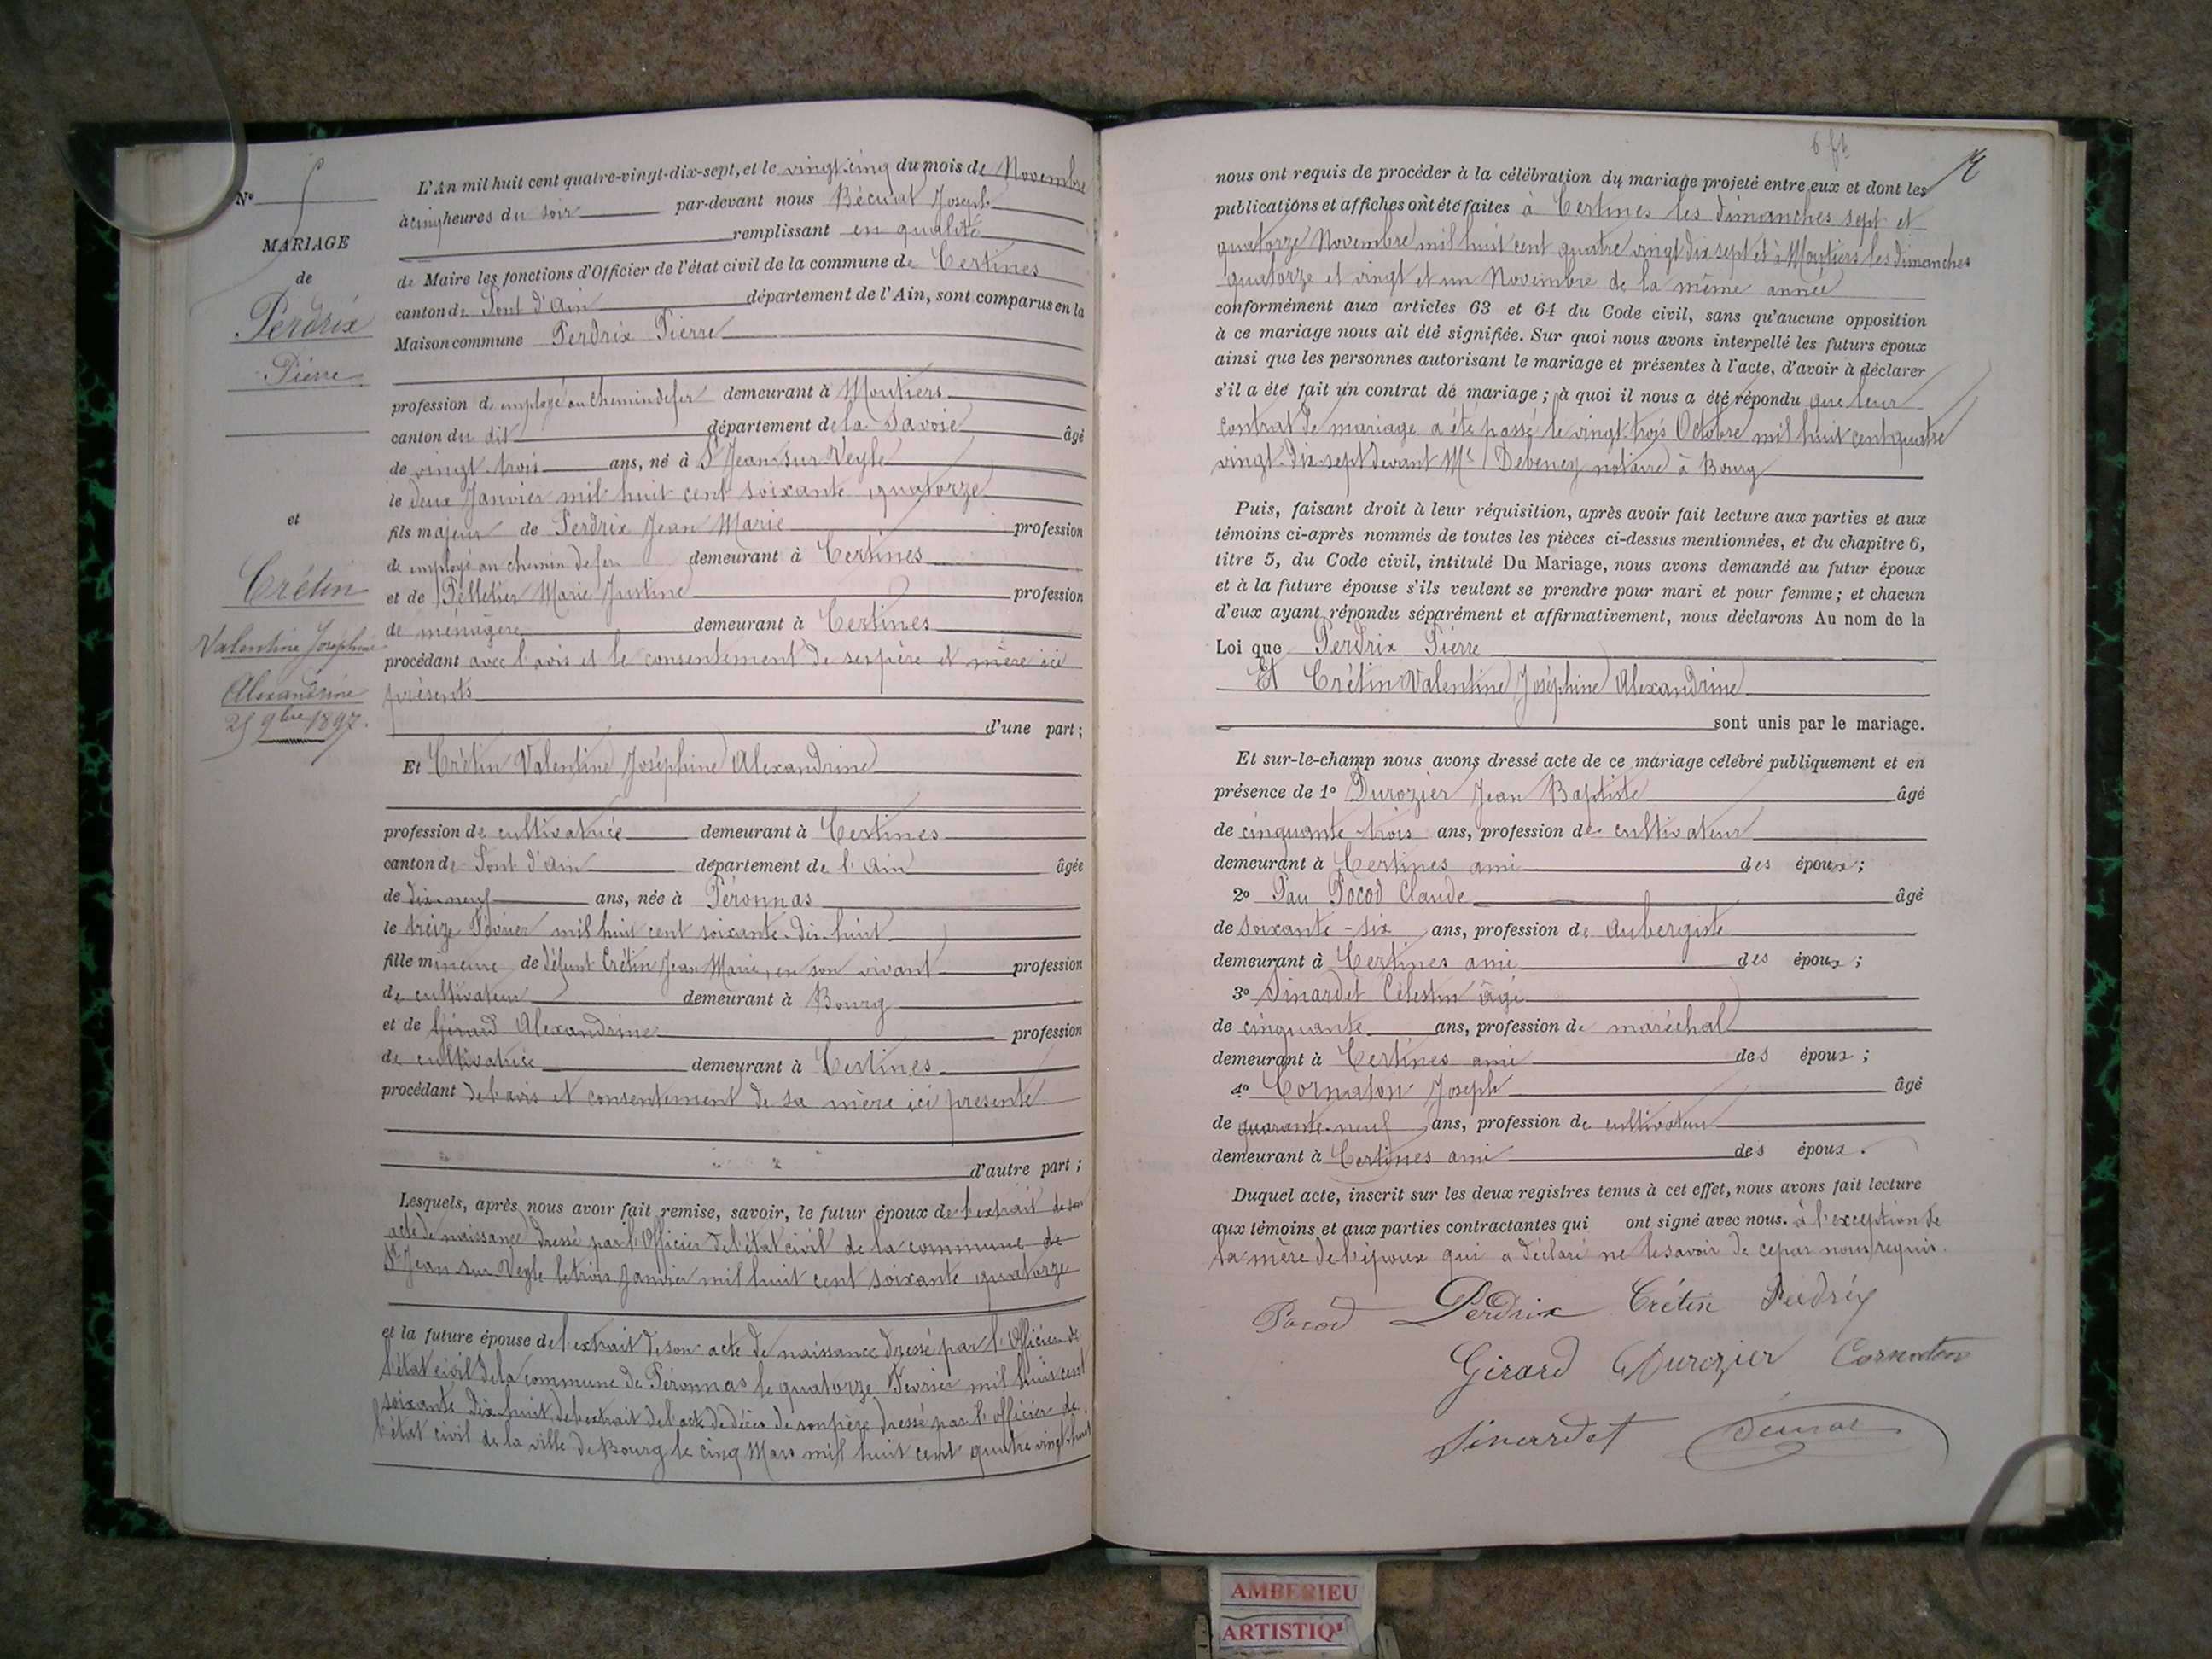 Nº 5
MARIAGE
de
Perdrix
Pierre
et
Crétin
Valentine Joséphine
Alexandrine
25 9bre 1897.
L'An mil huit cent quatre-vingt-dix-sept, et le vingt-cinq du mois de Novembre
à cinq heures du soir par-devant nous Bécurat Joseph
remplissant en qualité
de Maire les fonctions d'Officier de l'état civil de la commune de Certines
canton de Pont d'Ain département de l'Ain, sont comparus en la
Maison commune Perdrix Pierre
profession d employé au chemin de fer demeurant à Moutiers
canton du dit département de la Savoie âgé
de vingt-trois ans, né à St Jean-sur-Veyle
le deux Janvier mil huit cent soixante quatorze
fils majeur de Perdrix Jean Marie profession
de employé au chemin de fer demeurant à Certines
et de Pelletier Marie Justine profession
de ménagère demeurant à Certines
procédant avec l'avis et le consentement de ses père et mère ici
présents
d'une part ;
Et Crétin Valentine Joséphine Alexandrine
profession de cultivatrice demeurant à Certines
canton de Pont d'Ain département de l'Ain âgée
de dix-neuf ans, née à Péronnas
le treize Février mil huit cent soixante-dix-huit
fille mineure de défunt Crétin Jean Marie, en son vivant profession
de cultivateur demeurant à Bourg
et de Girard Alexandrine profession
de cultivatrice demeurant à Certines
procédant de l'avis et consentement de sa mère ici présente
d'autre part ;
Lesquels, après nous avoir fait remise, savoir, le futur époux de l'extrait de son
acte de naissance dressé par l'Officier de l'état civil de la commune de
St Jean-sur-Veyle le trois Janvier mil huit cent soixante quatorze
et la future épouse de l'extrait de son acte de naissance dressé par l'Officier de
l'état civil de la commune de Péronnas le quatorze Février mil huit cent
soixante dix huit, de l'extrait de l'acte de décès de son père dressé par l'officier de
l'état civil de la ville de Bourg le cinq Mars mil huit cent quatre vingt-huit
nous ont requis de procéder à la célébration du mariage projeté entre eux et dont les
publications et affiches ont été faites à Certines les dimanches sept et
quatorze Novembre mil huit cent quatre vingt dix sept et à Moutiers les dimanches
quatorze et vingt et un Novembre de la même année
conformément aux articles 63 et 64 du Code civil, sans qu'aucune opposition
à ce mariage nous ait été signifiée. Sur quoi nous avons interpellé les futurs époux
ainsi que les personnes autorisant le mariage et présentes à l'acte, d'avoir à déclarer
s'il a été fait un contrat de mariage ; à quoi il nous a été répondu que leur
contrat de mariage a été passé le vingt-trois Octobre mil huit cent quatre
vingt-dix-sept devant Me Debeney notaire à Bourg
Puis, faisant droit à leur réquisition, après avoir fait lecture aux parties et aux
témoins ci-après nommés de toutes les pièces ci-dessus mentionnées, et du chapitre 6,
titre 5, du Code civil, intitulé Du Mariage, nous avons demandé au futur époux
et à la future épouse s'ils veulent se prendre pour mari et pour femme ; et chacun
d'eux ayant répondu séparément et affirmativement, nous déclarons Au nom de la
Loi que Perdrix Pierre
Et Crétin Valentine Joséphine Alexandrine
sont unis par le mariage.
Et sur-le-champ nous avons dressé acte de ce mariage célébré publiquement et en
présence de 1º Durozier Jean Baptiste âgé
de cinquante-trois ans, profession de cultivateur
demeurant à Certines ami des époux ;
2º Pau Pocod Claude âgé
de soixante-six ans, profession de Aubergiste
demeurant à Certines ami des époux ;
3º Sinardet Célestin âgé
de cinquante ans, profession de maréchal
demeurant à Certines ami des époux ;
4º Cormaton Joseph âgé
de quarante-neuf ans, profession de cultivateur
demeurant à Certines ami des époux.
Duquel acte, inscrit sur les deux registres tenus à cet effet, nous avons fait lecture
aux témoins et aux parties contractantes qui ont signé avec nous. à l'exception de
la mère de l'époux qui a déclaré ne le savoir de ce par nous requis.
Pocod Perdrix Crétin Perdrix
Girard Durozier Cormaton
Sinardet
AMBERIEU
ARTISTIQ